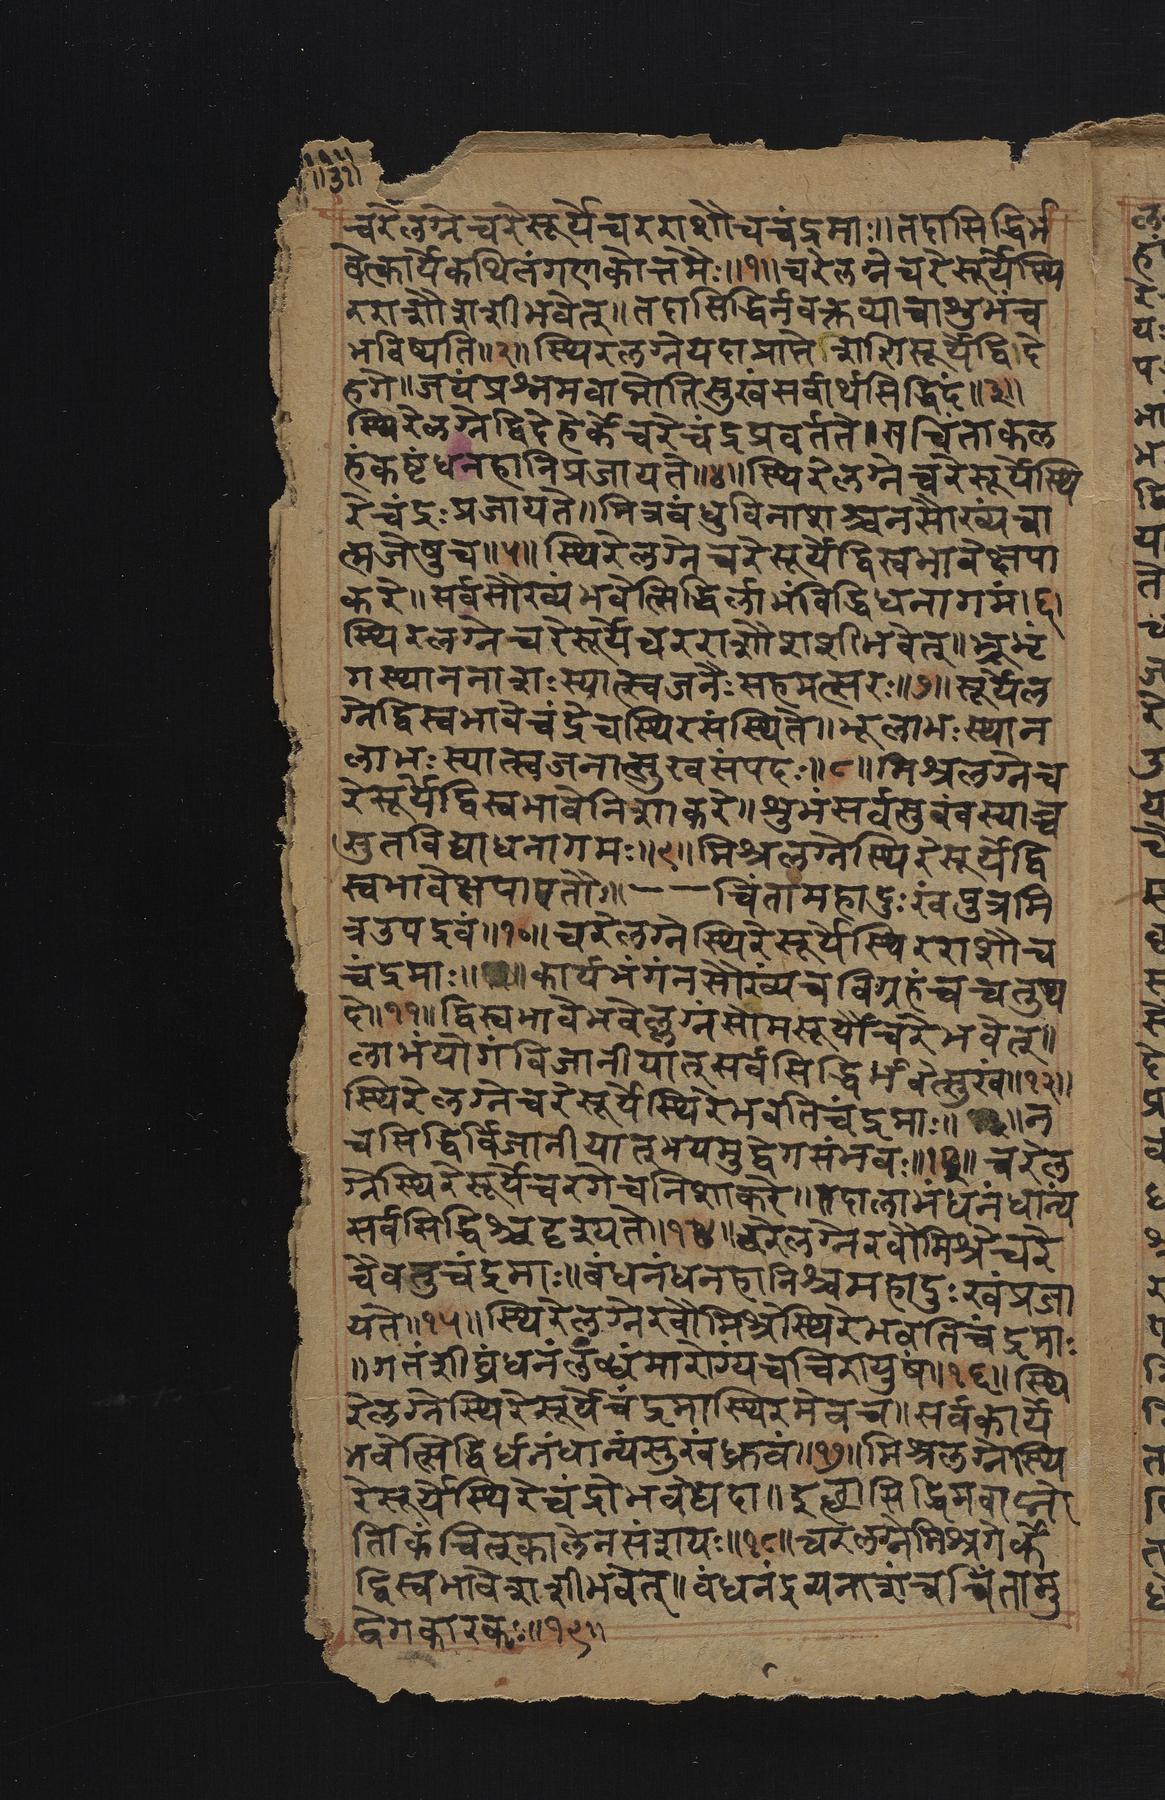 ॥३१॥
चरेलग्नेचरेसूर्येचरराशौचचंद्रमाः॥तदासिद्धिर्भ
वेत्कार्यंकथितंगणकोत्तमैः॥१॥चरेलग्नेचरेसूर्येस्थि
रराशौशशीभवेत्॥तदासिद्धिर्नवक्तव्याचाशुभंच
भविष्यति॥२॥स्थिरलग्नेयदाप्राप्तेशशिसूर्येद्विदे
हगे॥जयंप्रश्नमवाप्नोतिसुखंसर्वार्थसिद्धिदं॥३॥
स्थिरेलग्नेद्विदेहेर्केचरेचंद्रप्रवर्तते॥चिंताकल
हंकष्टंधनहानिप्रजायते॥४॥स्थिरेलग्नेचरेसूर्येस्थि
रेचंद्रःप्रजायते॥मित्रबंधुविनाशश्चनसौख्यंचा
त्मजेषुच॥५॥स्थिरेलग्नेचरेसूर्येद्विस्वभावेक्षपा
करे॥सर्वसौख्यंभवेत्सिद्धिर्लाभंविद्धिधनागमं।६।
स्थिरलग्नेचरेसूर्येचरराशौशशीभवेत्॥भ्रूभं
गस्थाननाशःस्यात्स्वजनैःसहमत्सरः॥७॥सूर्येल
ग्नेद्विस्वभावेचंद्रेचस्थिरसंस्थिते॥भूलाभःस्थान
लाभःस्यात्स्वजनात्सुखसंपदः॥८॥मिश्रलग्नेच
रेसूर्येद्विस्वभावेनिशाकरे॥शुभंसर्वसुखंवस्याच्च
सुतविद्याधनागमः॥९॥मिश्रलग्नेस्थिरेसूर्येद्वि
स्वभावेक्षपापतौ॥——चिंतामहादुःखंपुत्रमि
त्रउपद्रवं॥१०॥चरेलग्नेस्थिरेसूर्येस्थिरराशौच
चंद्रमाः॥कार्यभंगंनसौख्यंचविग्रहंचचतुष्प
दे॥११॥द्विस्वभावेभवेल्लग्नंसोमसूर्यौचरेभवेत्॥
लाभंयोगंविजानीयात्सर्वसिद्धिर्भवेत्सुखं॥१२॥
स्थिरेलग्नेचरेसूर्येस्थिरेभवतिचंद्रमाः॥न
चसिद्धिर्विजानीयात्भयमुद्वेगसंभवः॥१३॥चरेल
ग्नेस्थिरेसूर्येचरगेचनिशाकरे॥तदालाभंधनंधान्यं
सर्वसिद्धिश्चदृश्यते॥१४॥चरेलग्नेरवौमिश्रेचरे
चैवतुचंद्रमाः॥बंधनंधनहानिश्चमहादुःखंप्रजा
यते॥१५॥स्थिरेलग्नेरवौमिश्रेस्थिरेभवतिचंद्रमाः
॥गतंशीघ्रंधनंलब्धंमारोग्यंचचिरायुषं॥१६॥स्थि
रेलग्नेस्थिरेसूर्येचंद्रमास्थिरमेवच॥सर्वकार्ये
भवेत्सिद्धिर्धनंधान्यंसुखंध्रुवं॥१७॥मिश्रलग्नेस्थि
रेसूर्येस्थिरेचंद्रोभवेद्यदा॥सिद्धिमवाप्नो
तिकिंचित्कालेनसंशयः॥१८॥चरंलग्नेमिश्रगर्के
द्विस्वभावेशशीभवेत्॥बंधनंद्रव्यनाशंचचिंतामु
द्वेगकारकः॥१९॥